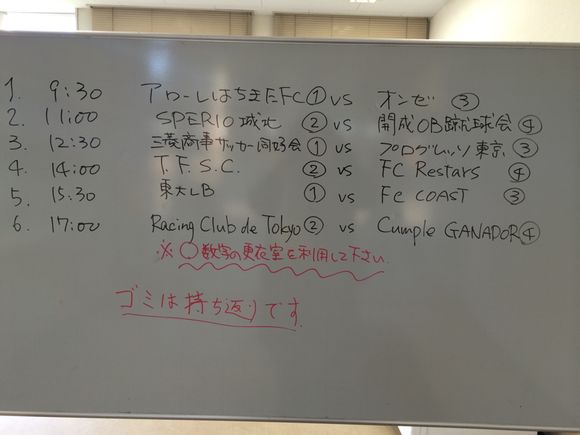 1. 9:30 アローレはちきたFC① vs オンゼ ③
2. 11:00 SPERIO城北 ② vs 開成OB蹴球会④
3. 12:30 三菱商事サッカー同好会① vs プログレッソ東京③
4. 14:00 T.F.S.C. ② vs FC Restars ④
5. 15:30 東大LB ① vs FC COAST ③
6. 17:00 Racing Club de Tokyo② vs Cumple GANADOR④
※ ○数字の更衣室を利用して下さい
ゴミは持ち返りです